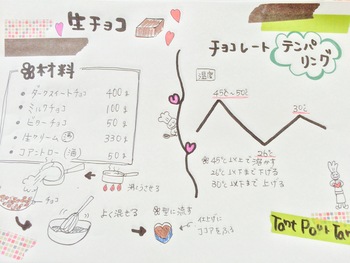 生チョコ
材料
ダークスイートチョコ 400g
ミルクチョコ 100g
ビターチョコ 50g
生クリーム 330g
コアントロー(酒) 50g
チョコ
沸とうさせる
よく混ぜる
型に流す
仕上げに
ココアをふる
チョコレート
テンパ
リング
温度
45℃~50℃
30℃
26℃
45℃以上で溶かす
26℃以下まで下げる
30℃以下まで上げる